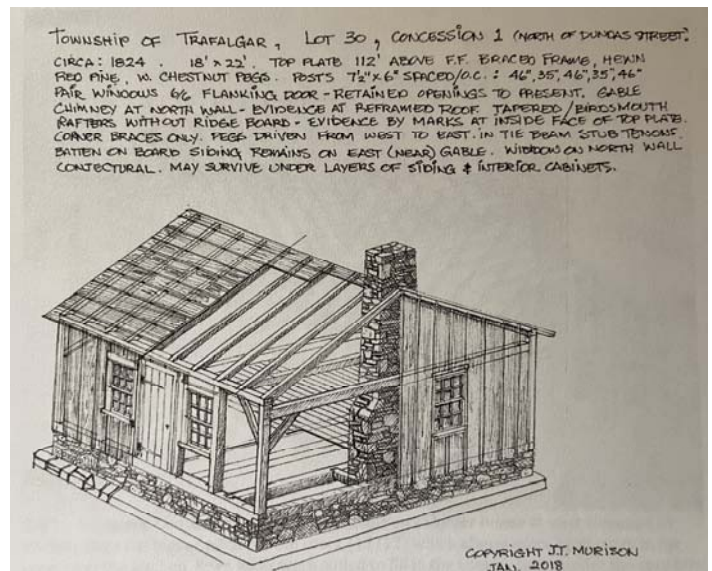 TOWNSHIP OF TRAFALGAR, LOT 30, CONCESSION 1 (NORTH OF DUNDAS STREET.
CIRCA: 1824. 18' x 22'. TOP PLATE 112" ABOVE F.F. BRACED FRAME, HEWN
RED PINE, W. CHESTNUT PEGS. POSTS 7½" x 6" SPACED/O.C.: 46", 35", 46", 35", 46"
PAIR WINDOWS 6/6 FLANKING DOOR - RETAINED OPENINGS TO PRESENT. GABLE
CHIMNEY AT NORTH WALL - EVIDENCE AT REFRAMED ROOF. TAPERED/BIRDSMOUTH
RAFTERS WITHOUT RIDGE BOARD - EVIDENCE BY MARKS AT INSIDE FACE OF TOP PLATE.
CORNER BRACES ONLY. PEGS DRIVEN FROM WEST TO EAST. IN TIE BEAM STUB TENONS.
BATTEN ON BOARD SIDING REMAINS ON EAST (NEAR) GABLE. WINDOW ON NORTH WALL
CONJECTURAL. MAY SURVIVE UNDER LAYERS OF SIDING & INTERIOR CABINETS.
COPYRIGHT J.T. MURISON
JAN. 2018